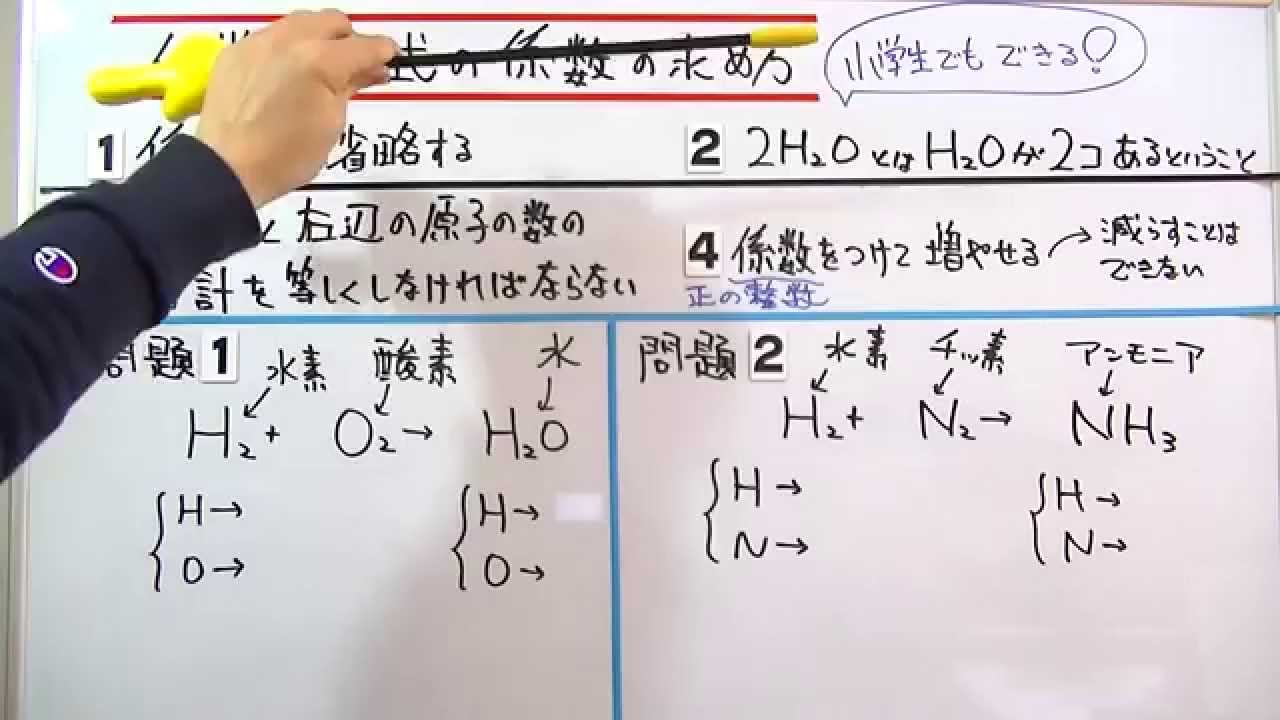 式の係数の求め方
小学生でもできる!
1 係 省略する
2 2H₂OとはH₂Oが2コあるということ
と右辺の原子の数の
計を等しくしなければならない
4 係数をつけて増やせる → 減らすことはできない
正の整数
問題1
水素 酸素 水
H₂ + O₂ → H₂O
H → H →
O → O →
問題2
水素 チッ素 アンモニア
H₂ + N₂ → NH₃
H → H →
N → N →